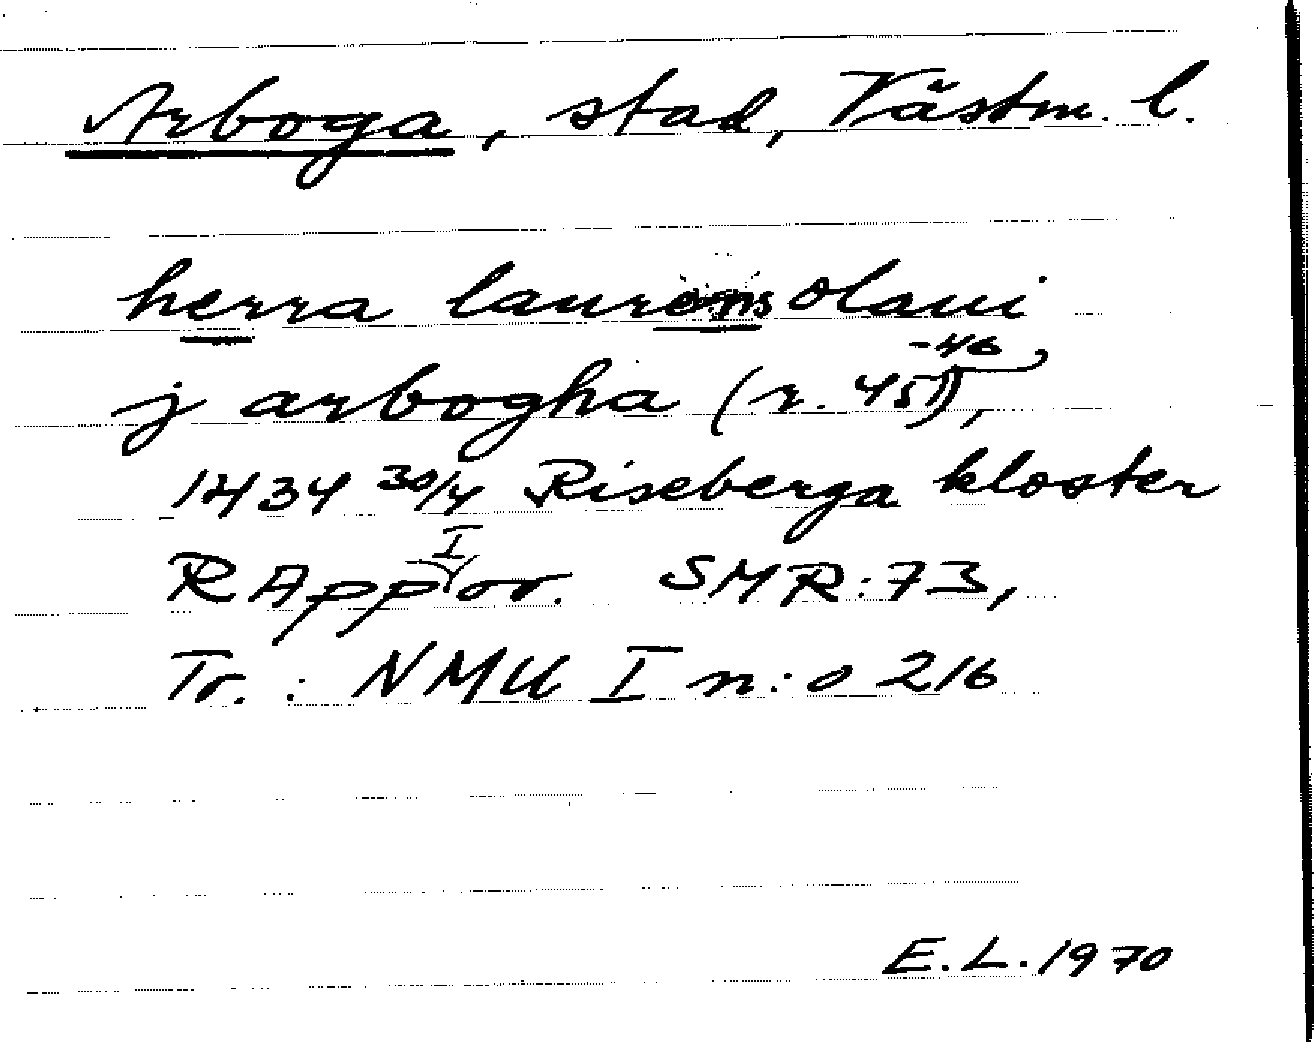 Arboga, stad, Västm. l.
herra laurens olaui
j arbogha (r. 45)-46,
1434 30/4 Riseberga kloster
RApp I or. SMR:73,
Tr.: NMU I n:o 216
E.L. 1970